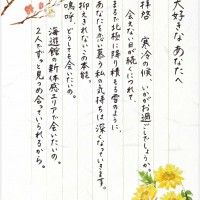 大好きなあなたへ
拝啓 寒冷の候、いかがお過ごしでしょうか。
会えない日が続くにつれて、
まるで北極に降り積もる雪のように、
あなたを恋い慕う私の気持ちは深くなっていきます。
抑えきれないこの本能。
嗚呼、どうしても会いたいの。
海遊館の新体感エリアで会いたいの。
2人でずっと見つめ合っていられるから。